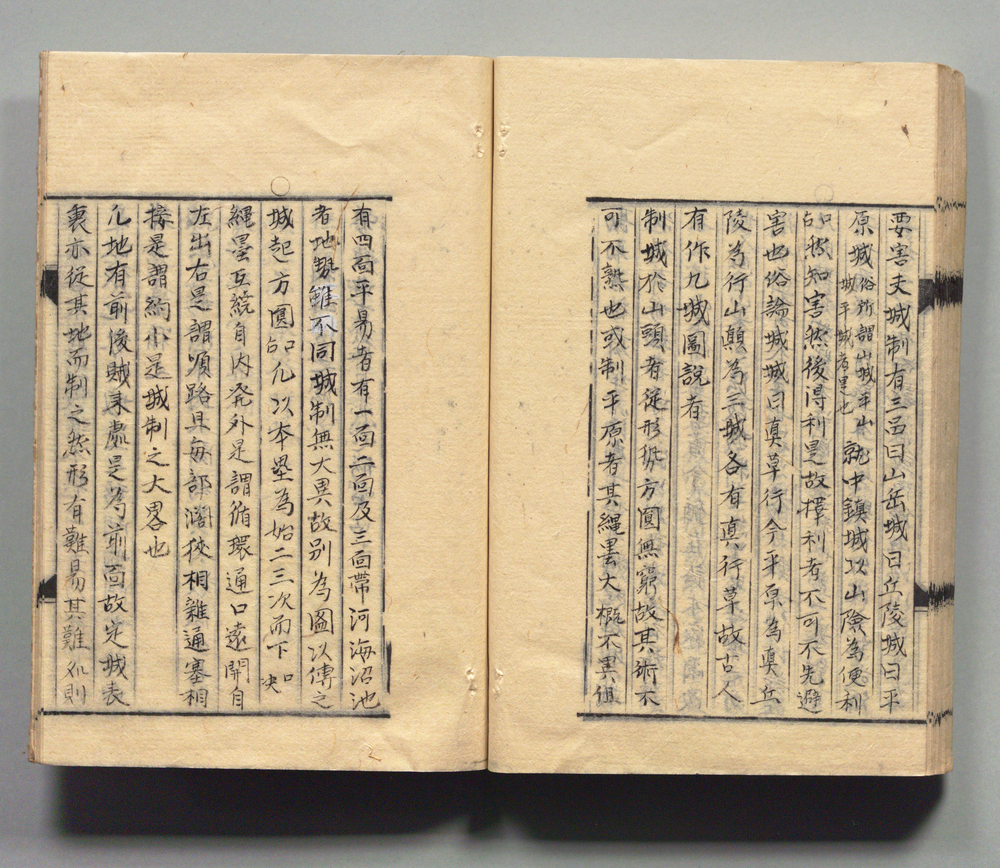 要害夫城制有三品曰山岳城曰丘陵城曰平
原城俗所謂山城平山城平城者是也就中鎮城以山險為便利
然知害然後得利是故擇利者不可不先避
害也俗論城城曰真草行今平原為真丘
陵為行山顛為三城各有真行草故古人
有作九城圖說者
制城於山頭者從形勢方圓無窮故其術不
可不熟也或制平原者其繩墨大概不異但
有四面平易者有一面二面及三面帶河海沼池
者地勢雖不同城制無大異故别為圖以傳之
城起方圓凡以本壘為始二三次而下
繩墨互繞自內発外是謂循環通口遠開自
左出右是謂順路且每部濶狹相雜通塞相
接是謂約小是城制之大畧也
凡地有前後賊来處是為前面故定城表
裏亦從其地而制之然形有難易其難則